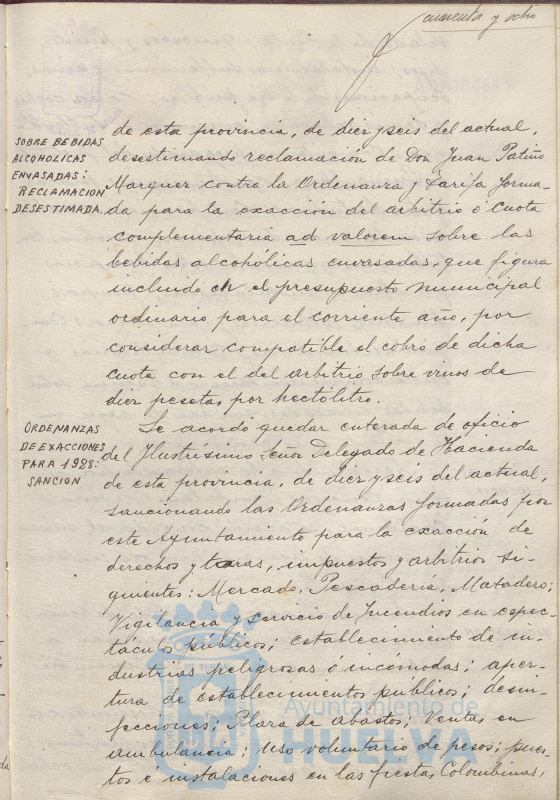 cuarenta y ocho
SOBRE BEBIDAS
ALCOHOLICAS
ENVASADAS:
RECLAMACION
DESESTIMADA.
de esta provincia, de diez y seis del actual,
desestimando reclamación de Don Juan Patiño
Marquez contra la Ordenanza y Tarifa forma-
da para la exacción del arbitrio ó cuota
complementaria ad valorem sobre las
bebidas alcohólicas envasadas, que figura
incluido en el presupuesto municipal
ordinario para el corriente año, por
considerar compatible el cobro de dicha
cuota con el del arbitrio sobre vinos de
diez pesetas por hectólitro.
ORDENANZAS
DE EXACCIONES
PARA 1928:
SANCION
Se acordó quedar enterada de oficio
del Ilustrísimo Señor Delegado de Hacienda
de esta provincia, de diez y seis del actual,
sancionando las Ordenanzas formadas por
este Ayuntamiento para la exacción de
derechos y tasas, impuestos y arbitrios si-
guientes: Mercado, Pescadería, Matadero;
Vigilancia y servicio de Incendios en espec-
táculos públicos; establecimiento de in-
dustrias peligrosas ó incómodas; aper-
tura de establecimientos públicos; desin-
fecciones; Plaza de abastos; Ventas en
ambulancia; Uso voluntario de pesos; pues-
tos é instalaciones en las fiestas Colombinas,
Ayuntamiento de
HUELVA